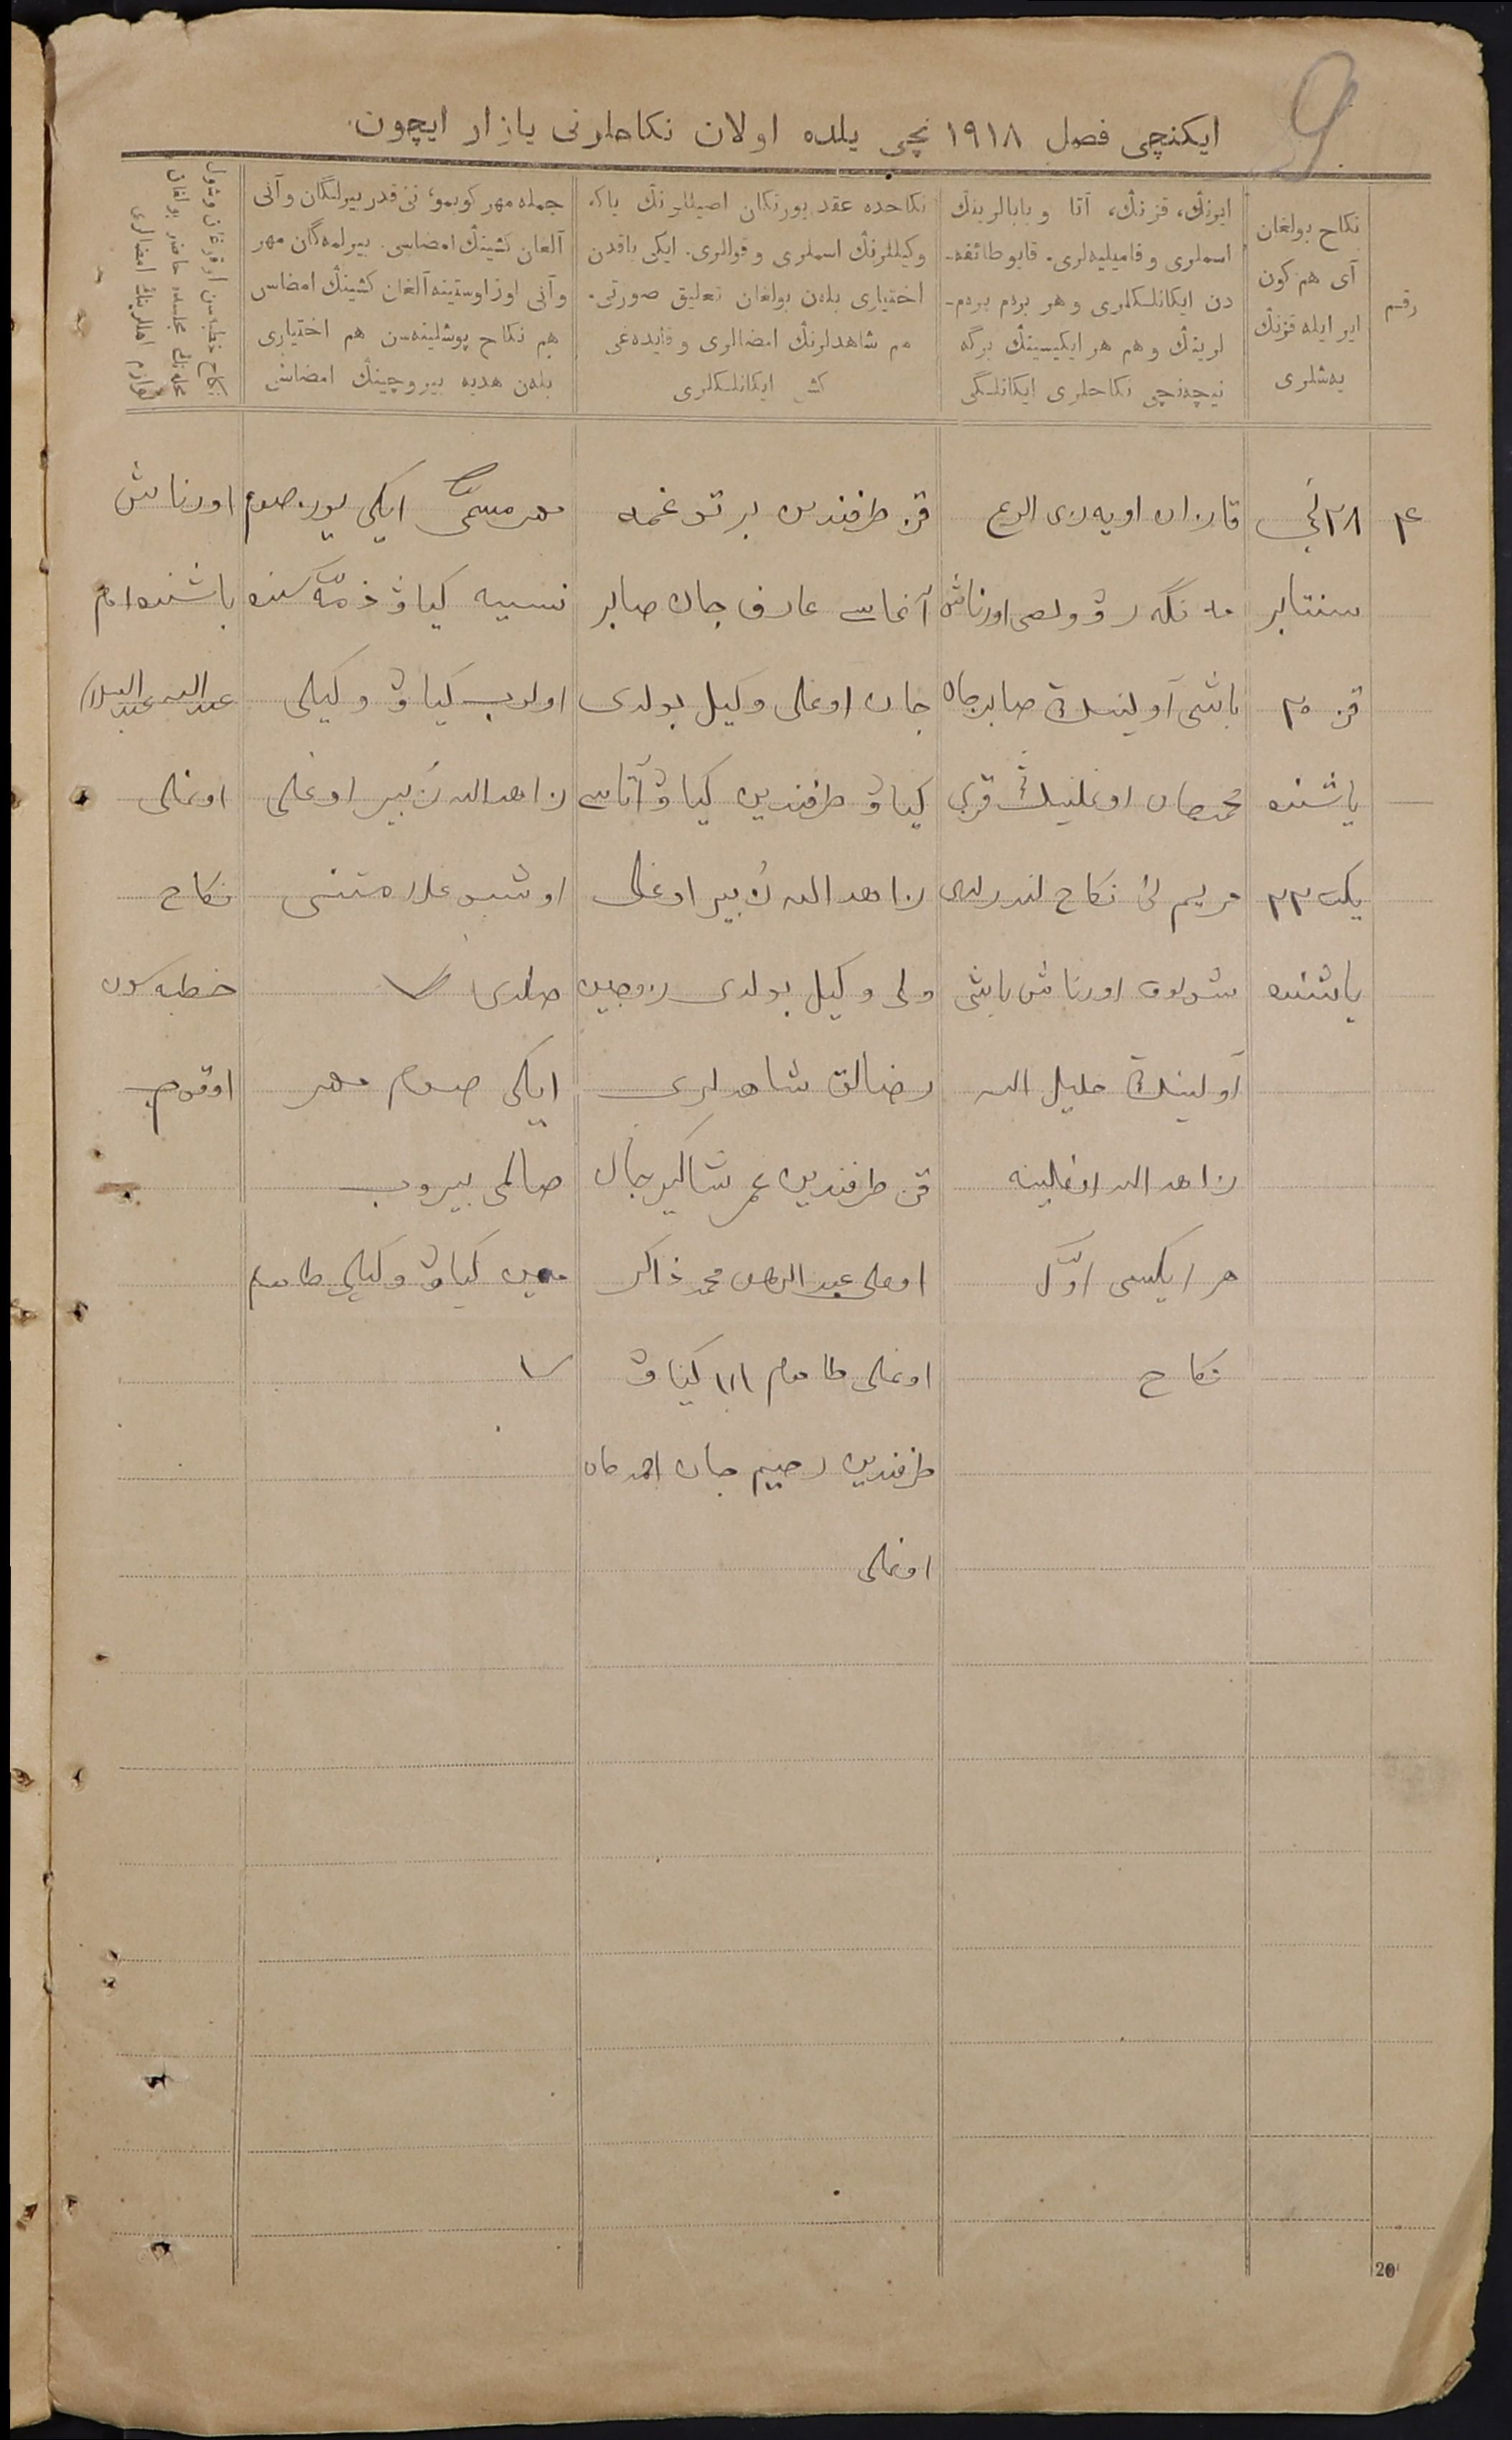 9
ایكنچی فصل ١٩١٨ نچی یلده اولان نكاحلرنی یازار ایچون.
رقم
نكاح بولغان
آی هم كون
ایر ایله قزنڭ
یەشلری
ایرنڭ، قزنڭ، آتا و بابالرینڭ
اسملری و فامیلیەلری. قایو طائفه-
دن ایكانلكلری و هر بردم بردم-
لرینڭ و هم هر ایكیسینڭ برگه
نیچەنچی نكاحلری ایكانلگی
نكاحده عقد یورتكان اصیللرنڭ یاكه
وكیللرنڭ اسملری و قوللری. ایكی یاقدن
اختیاری بلەن بولغان تعلیق صورتی.
هم شاهدلرنڭ امضالری و قایدەغی
كشی ایكانلكلری
جمله مهر كوبمو، نی قدر بیرلگان و آنی
آلغان كشینڭ امضاسی. بیرلمەگان مهر
و آنی اوز اوستینه آلغان كشینڭ امضاسی
هم نكاح پوشلینەسن هم اختیاری
بلەن هدیه بیروچینڭ امضاسی
نكاح خطبەسن اوقوغان و شول
مجلسده حاضر بولغان
امضالری
٤
٢٨ نچی
سنتابر
قز ٢٠
یاشنده
یكت ٢٣
یاشنده
قازان اویەزی
اورناش
باشی آولینڭ صابرجان
محمدجان اوغلینڭ قزی
مریم نی نكاح لندرلدی
شولوق اورناش باشی
آولینڭ خلیل الله
زاهدالله اوغلینه
هر ایكسی اوّل
نكاح
قز طرفندن بر توغمه
آغاسی عارف جان صابر
جان اوغلی وكیل بولدی
كیاو طرفندین كیاو آتاسی
زاهدالله كبیر اوغلی
ولی وكیل بولدی زوجین
رضالق شاهدلری
قز طرفندین عمر شاكیرجان
اوغلی عبدالرحمن محمد ذاكر
اوغلی كیاو
طرفندین رحیم جان احمدجان
اوغلی
مهر مسمّی ایكی یوز صوم
نسیه كیاو ذمّه سنده
اولوب كیاو وكیلی
زاهدالله كبیر اوغلی
اوشبو علامتنی
صالدی
ایكی صوم مهر
صالمی بیروب
كیاو وكیلی
اورناش
باشنده امام
عبدالله عبد
اوغلی
نكاح
خطبه سن
اوقودم
20